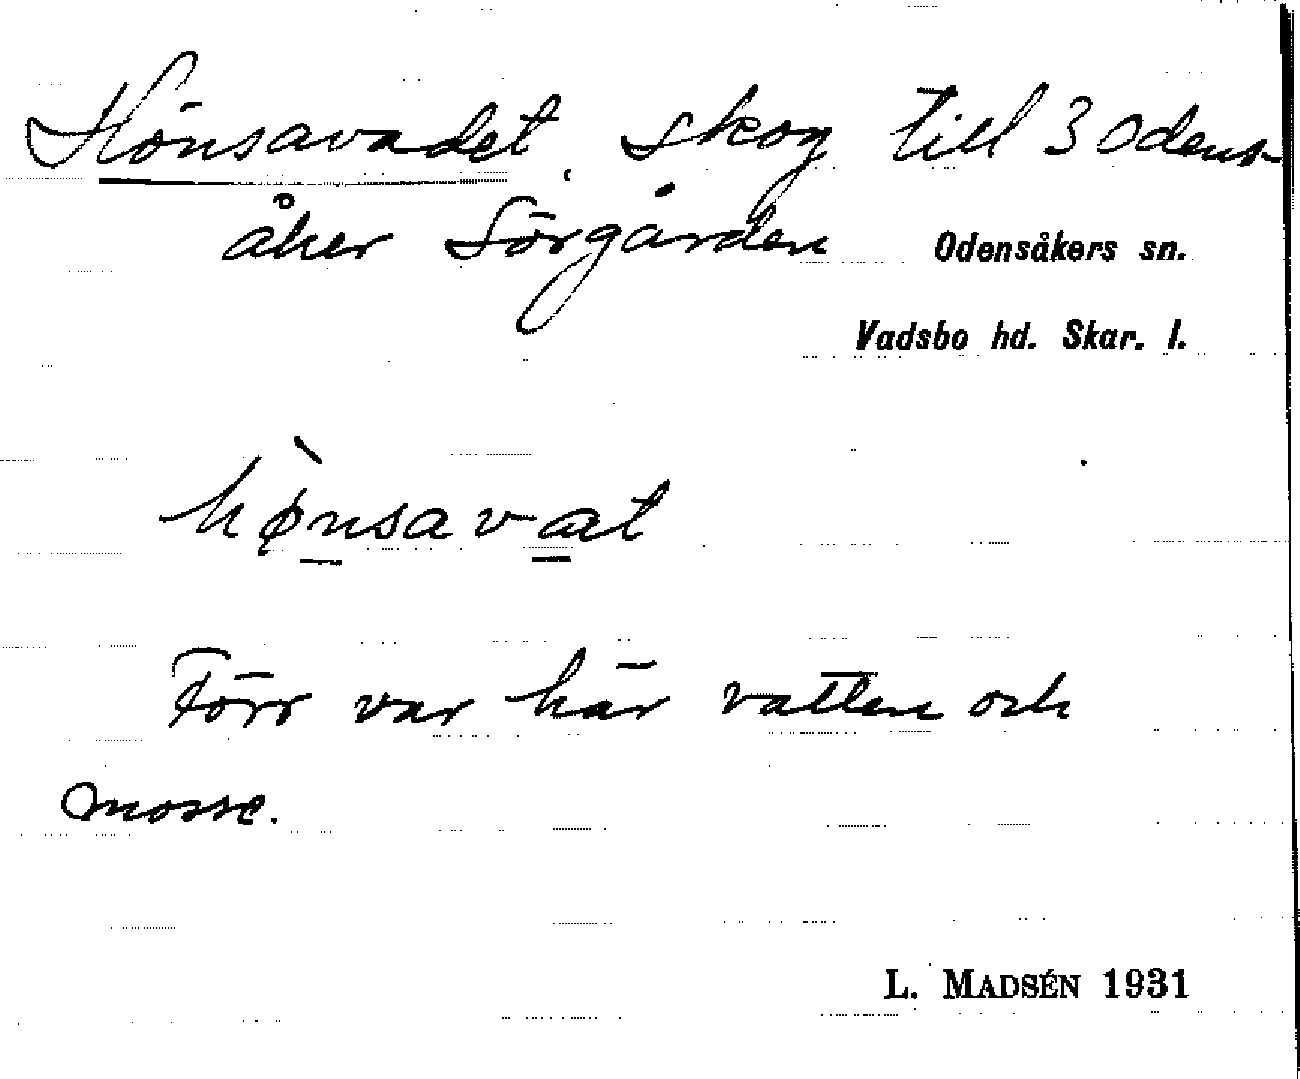 Hönsavadet, skog till 3 Odens-
åker Sörgården
Odensåkers sn.
Vadsbo hd. Skar. l.
hø̀nsavat
Förr var här vatten och
mosse.
L. MADSÉN 1931